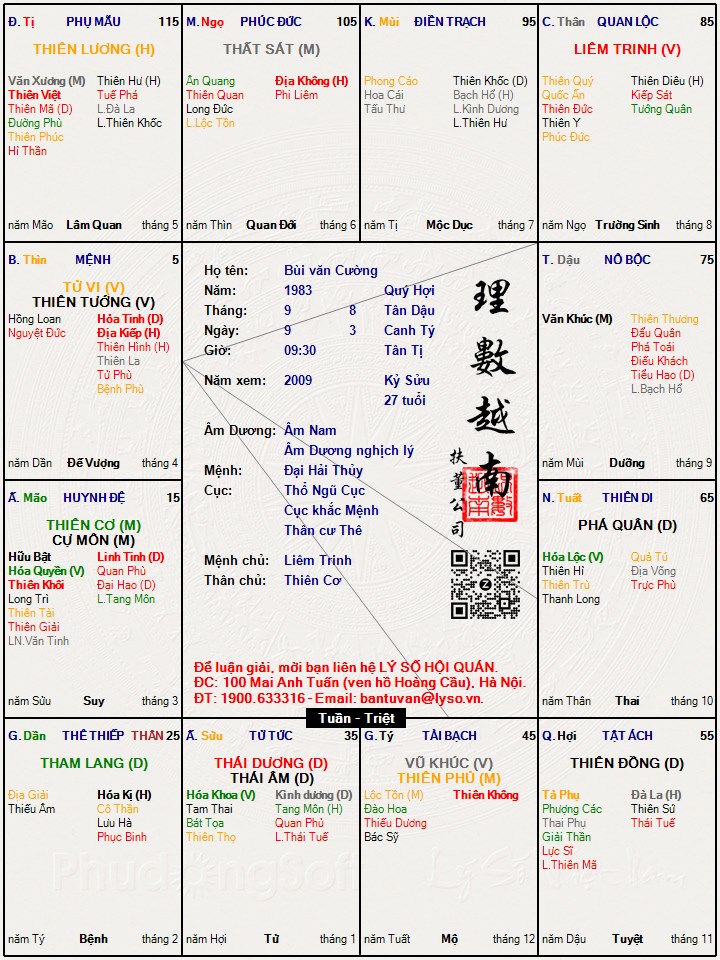 Đ. Tị PHỤ MẪU 115
THIÊN LƯƠNG (H)
Văn Xương (M) Thiên Hư (H)
Thiên Việt Tuế Phá
Thiên Mã (D) L.Đà La
Đường Phù L.Thiên Khốc
Thiên Phúc
Hỉ Thần
năm Mão Lâm Quan tháng 5
M. Ngọ PHÚC ĐỨC 105
THẤT SÁT (M)
Ân Quang Địa Không (H)
Thiên Quan Phi Liêm
Long Đức
L.Lộc Tồn
năm Thìn Quan Đới tháng 6
K. Mùi ĐIỀN TRẠCH 95
Phong Cáo Thiên Khốc (D)
Hoa Cái Bạch Hổ (H)
Tấu Thư L.Kình Dương
L.Thiên Hư
năm Tị Mộc Dục tháng 7
C. Thân QUAN LỘC 85
LIÊM TRINH (V)
Thiên Quý Thiên Diêu (H)
Quốc Ấn Kiếp Sát
Thiên Đức Tướng Quân
Thiên Y
Phúc Đức
năm Ngọ Trường Sinh tháng 8
B. Thìn MỆNH 5
TỬ VI (V)
THIÊN TƯỚNG (V)
Hồng Loan Hỏa Tinh (D)
Nguyệt Đức Địa Kiếp (H)
Thiên Hình (H)
Thiên La
Tử Phù
Bệnh Phù
năm Dần Đế Vượng tháng 4
Họ tên: Bùi văn Cường
Năm: 1983 Quý Hợi
Tháng: 9 8 Tân Dậu
Ngày: 9 3 Canh Tý
Giờ: 09:30 Tân Tị
Năm xem: 2009 Kỷ Sửu
27 tuổi
Âm Dương: Âm Nam
Âm Dương nghịch lý
Mệnh: Đại Hải Thủy
Cục: Thổ Ngũ Cục
Cục khắc Mệnh
Thân cư Thê
Mệnh chủ: Liêm Trinh
Thân chủ: Thiên Cơ
理數越南
扶董公司
Để luận giải, mời bạn liên hệ LÝ SỐ HỘI QUÁN.
ĐC: 100 Mai Anh Tuấn (ven hồ Hoàng Cầu), Hà Nội.
ĐT: 1900.633316 - Email: bantuvan@lyso.vn.
Tuần - Triệt
T. Dậu NÔ BỘC 75
Văn Khúc (M) Thiên Thương
Đẩu Quân
Phá Toái
Điếu Khách
Tiểu Hao (D)
L.Bạch Hổ
năm Mùi Dưỡng tháng 9
Ấ. Mão HUYNH ĐỆ 15
THIÊN CƠ (M)
CỰ MÔN (M)
Hữu Bật Linh Tinh (D)
Hóa Quyền (V) Quan Phù
Thiên Khôi Đại Hao (D)
Long Trì L.Tang Môn
Thiên Tài
Thiên Giải
LN.Văn Tinh
năm Sửu Suy tháng 3
N. Tuất THIÊN DI 65
PHÁ QUÂN (D)
Hóa Lộc (V) Quả Tú
Thiên Hỉ Địa Võng
Thiên Trù Trực Phù
Thanh Long
năm Thân Thai tháng 10
G. Dần THÊ THIẾP THÂN 25
THAM LANG (D)
Địa Giải Hóa Kị (H)
Thiếu Âm Cô Thần
Lưu Hà
Phục Binh
năm Tý Bệnh tháng 2
Ấ. Sửu TỬ TỨC 35
THÁI DƯƠNG (D)
THÁI ÂM (D)
Hóa Khoa (V) Kình dương (D)
Tam Thai Tang Môn (H)
Bát Tọa Quan Phủ
Thiên Thọ L.Thái Tuế
năm Hợi Tử tháng 1
G. Tý TÀI BẠCH 45
VŨ KHÚC (V)
THIÊN PHỦ (M)
Lộc Tồn (M) Thiên Không
Đào Hoa
Thiếu Dương
Bác Sỹ
năm Tuất Mộ tháng 12
Q. Hợi TẬT ÁCH 55
THIÊN ĐỒNG (D)
Tả Phụ Đà La (H)
Phượng Các Thiên Sứ
Thai Phụ Thái Tuế
Giải Thần
Lực Sĩ
L.Thiên Mã
năm Dậu Tuyệt tháng 11